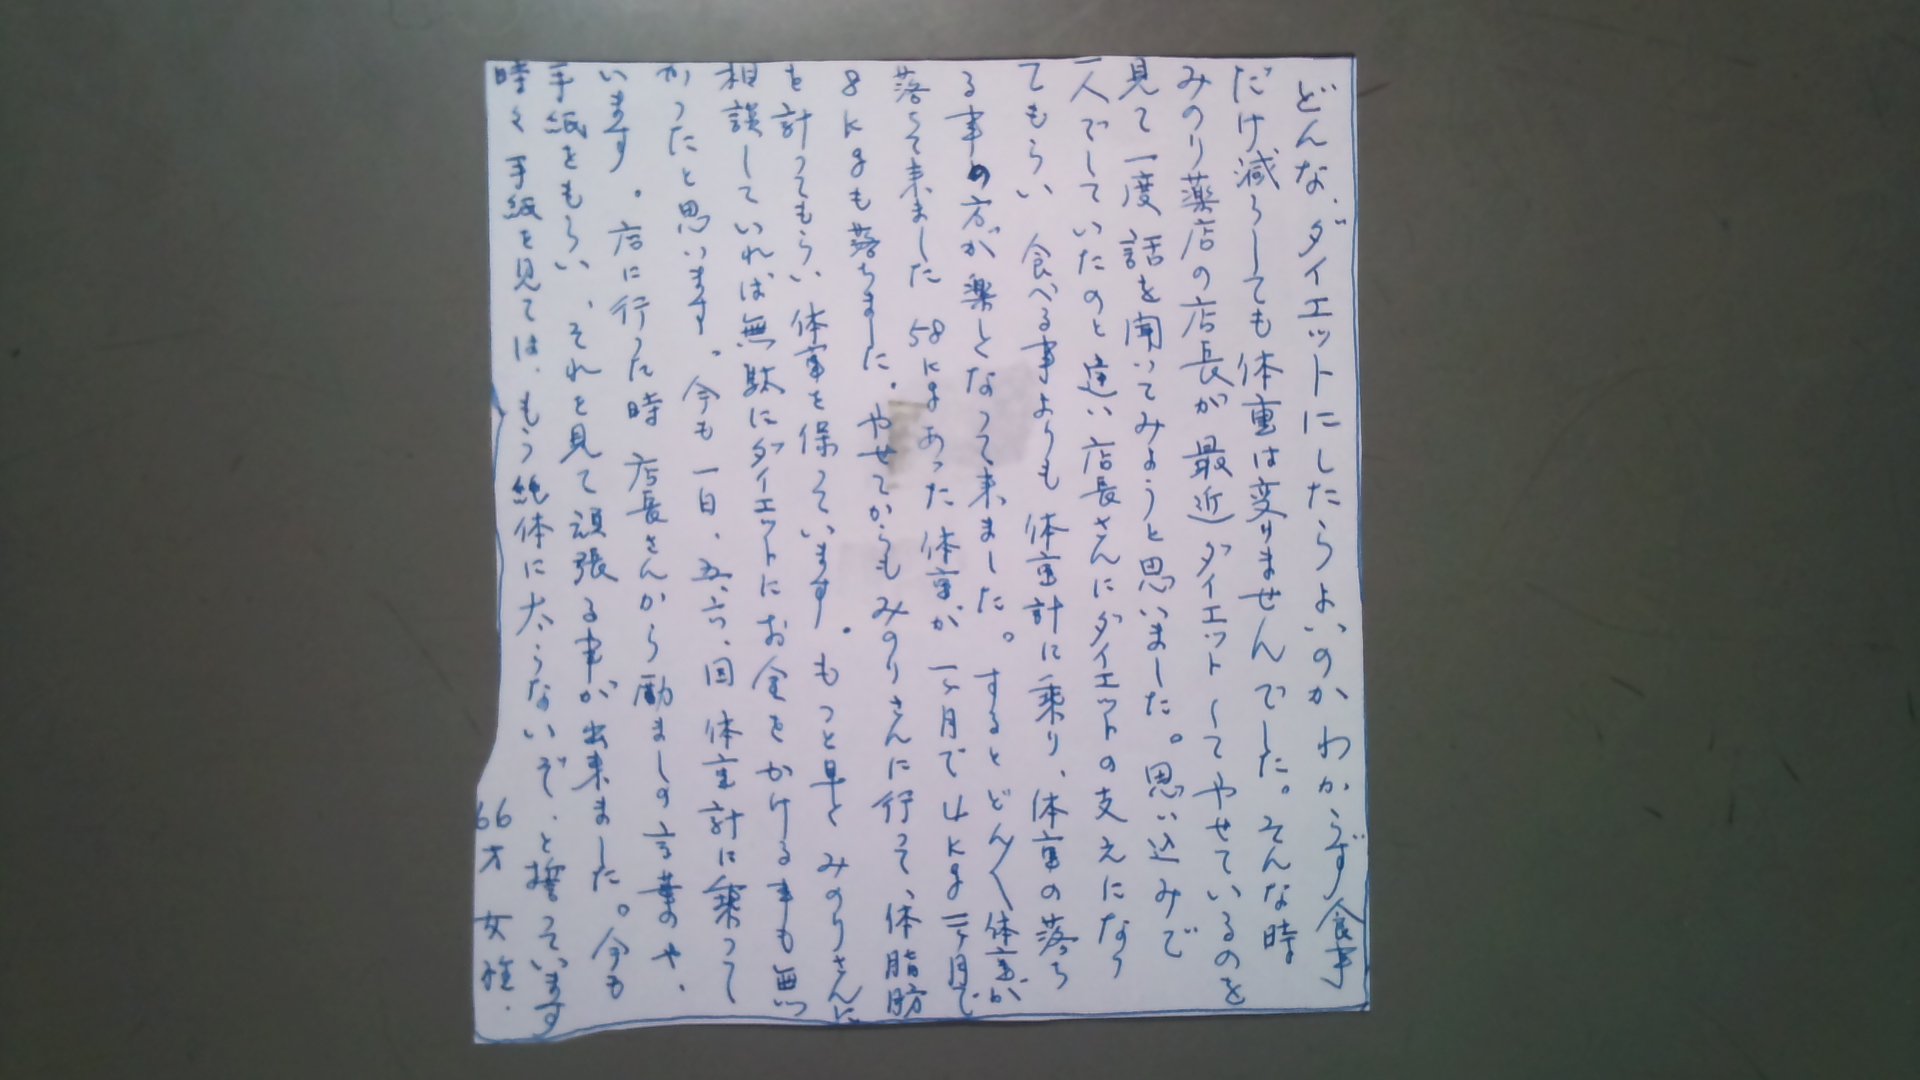 どんな、ダイエットにしたらよいのかわからず食事
だけ減らしても体重は変りませんでした。そんな時
みのり薬店の店長が最近ダイエットしてやせているのを
見て一度話を聞いてみようと思いました。思い込みで
一人でしていたのと違い店長さんにダイエットの支えになっ
てもらい食べる事よりも体重計に乗り、体重の落ち
る事の方が楽しとなって来ました。するとどん〱体重が
落ちて来ました58kgあった体重が一ヶ月で4kg二ヶ月で
8kgも落ちました。やせてからもみのりさんに行って、体脂肪
を計ってもらい体重を保っています。もっと早くみのりさんに
相談していれば無駄にダイエットにお金をかける事も無
かったと思います。今も一日、五、六、回体重計に乗って
います。店に行った時店長さんから励ましの言葉のや、
手紙をもらい、それを見て頑張る事が出来ました。今も
時々手紙を見ては、もう絶体に太らないぞ、と誓っています
66才女性.